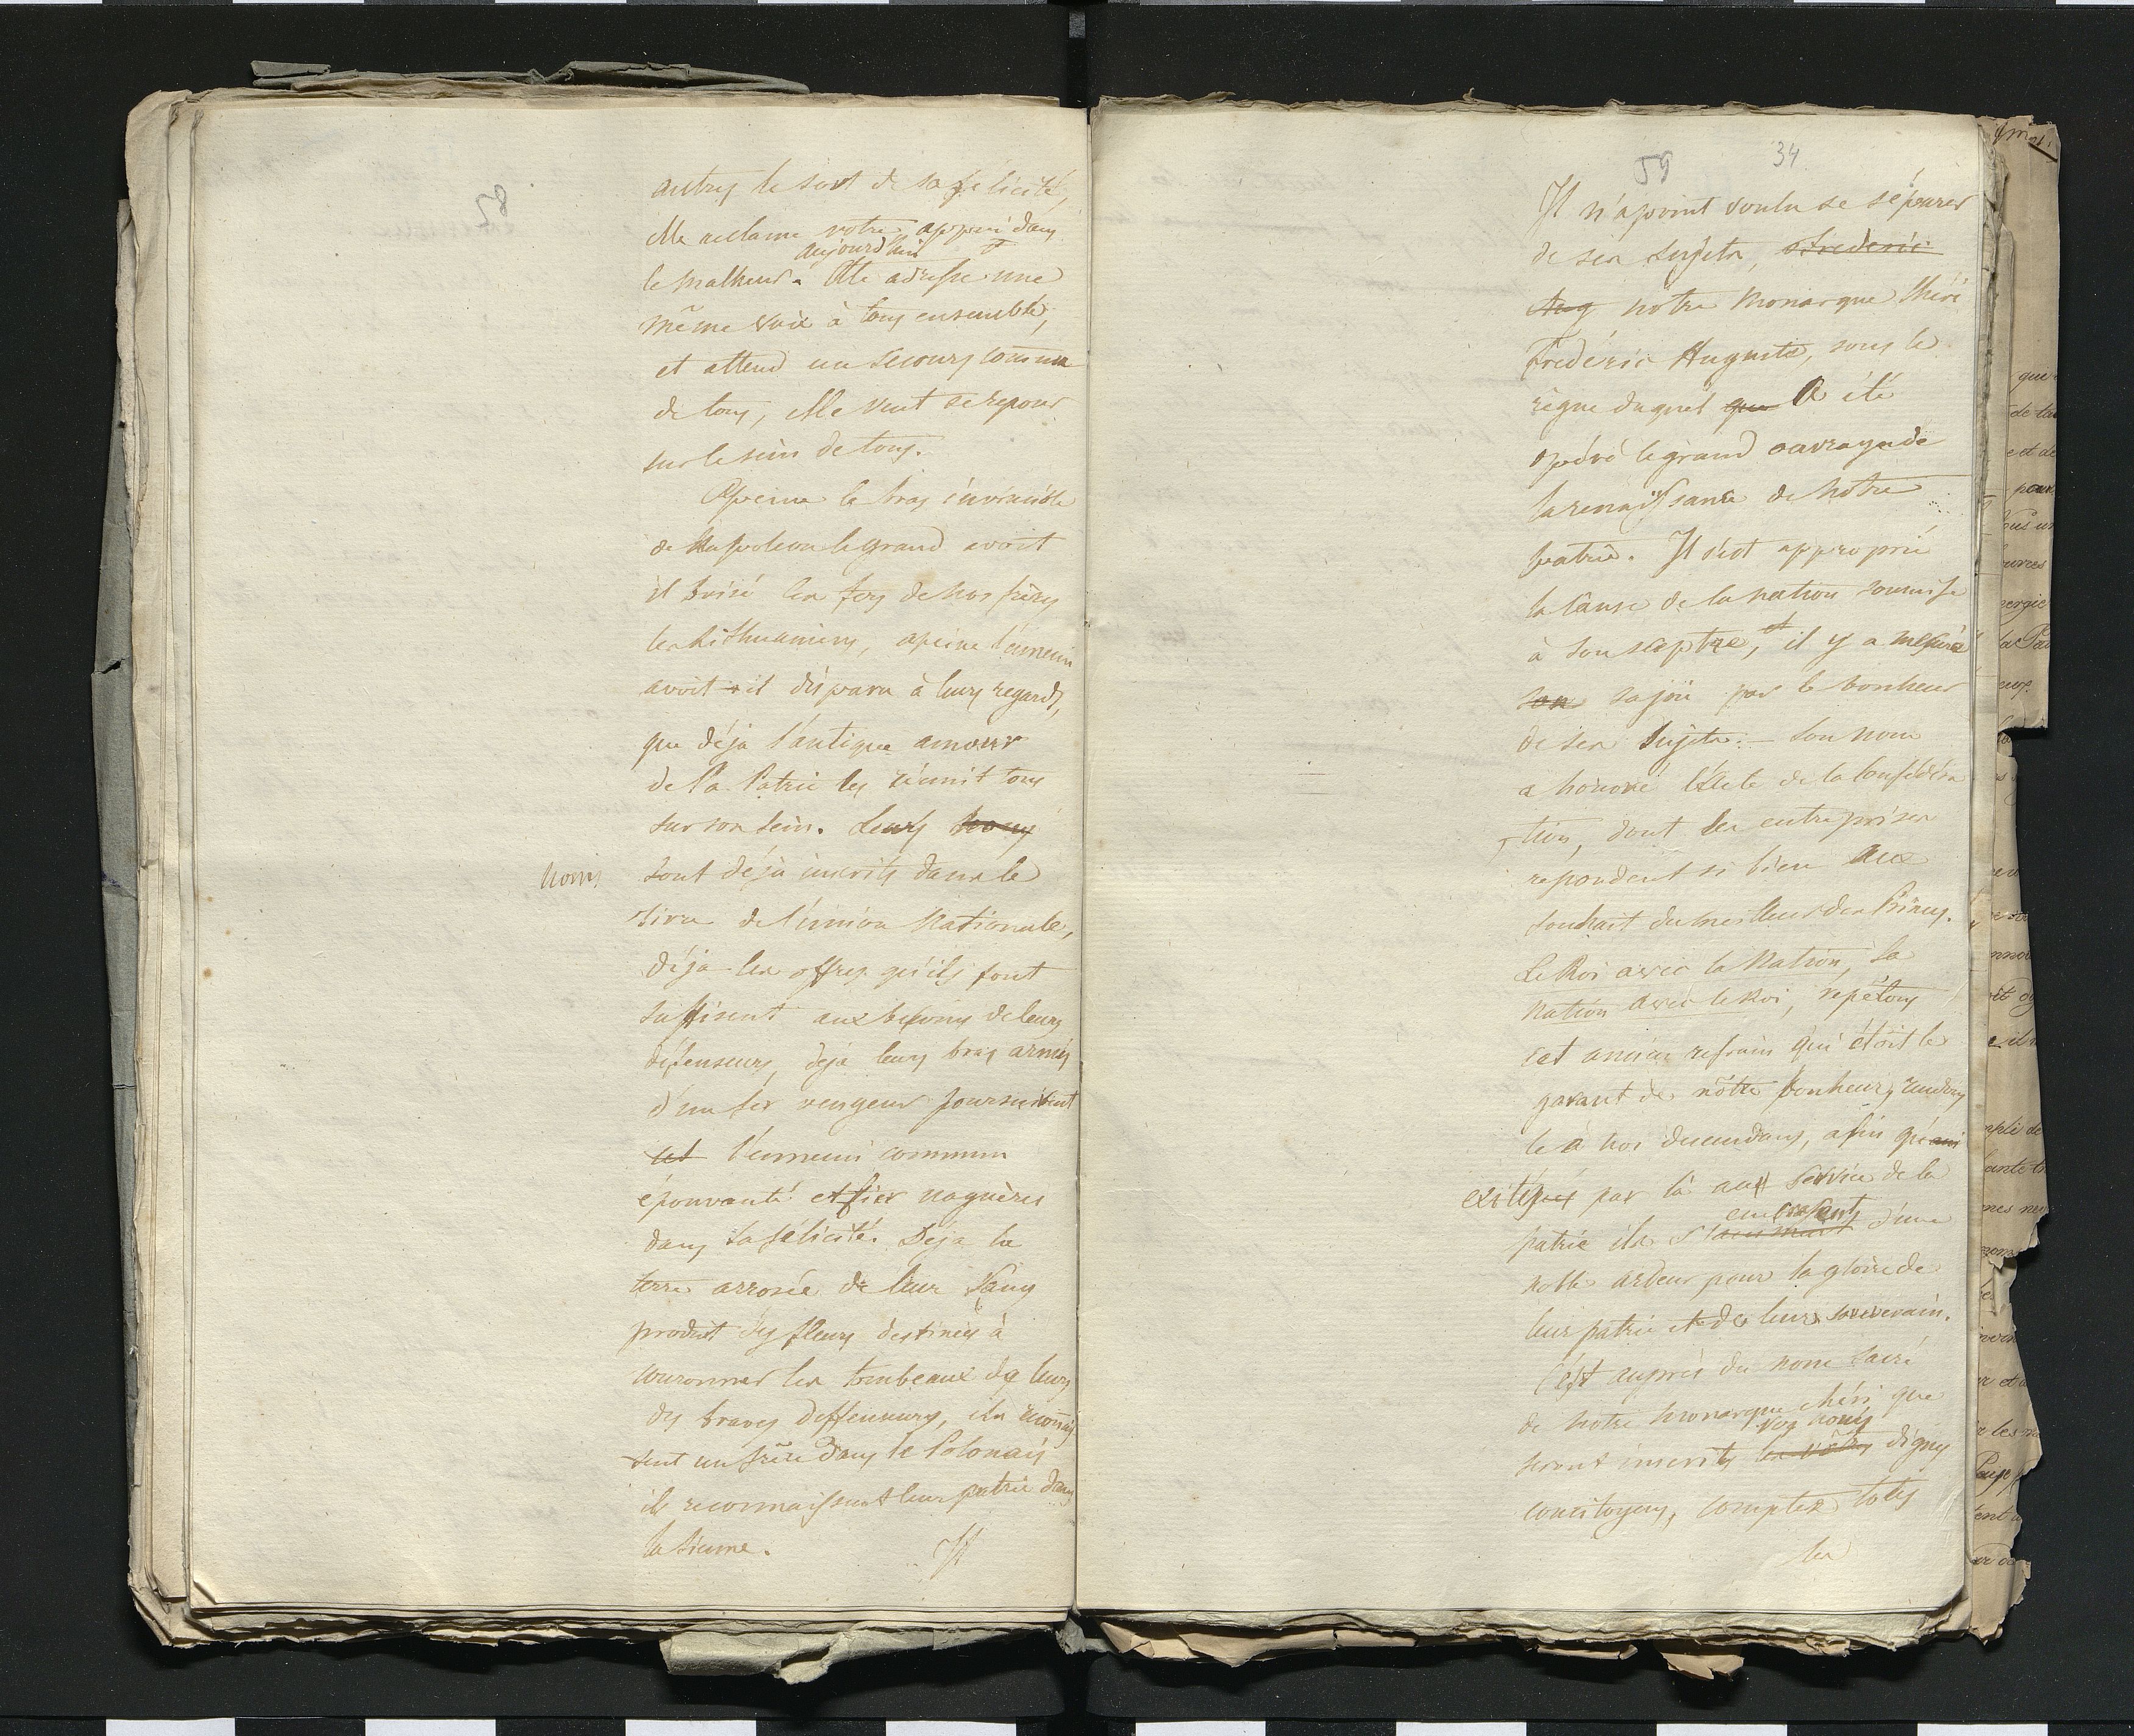 58
autres le sort de sa félicité,
elle reclame votre appui dans
aujourd'hui
le malheur. Elle adresse une
même voix à tous ensemble,
et attend un secours commun
de tous, elle veut se reposer
sur le sein de tous.
Apeine le bras invincible
de Napoleon le grand avoit
il brisé les fers de nos frères
les Lithuaniens, apeine l'ennemi
avoit il disparu à leurs regards,
que déja l'antique amour
de la Patrie les réunit tous
sur son sein. Leurs
noms sont déja inscrits dans le
livre de l'union Nationale,
déja les offres qu'ils font
suffisent aux besoins de leurs
défenseurs, déja leurs bras armés
d'un fer vengeur poursuivent
et l'ennemi commun
épouvanté et fier naguères
dans sa félicité. Déja la
terre arrosée de leur sang
produit des fleurs destinées à
couronner les tombeaux de leurs
des braves deffenseurs, ils reconnais
sent un frère dans le Polonais
ils reconnaissent leur patrie dans
la sienne. Il
59 34
Il n'a point voulu se séparer
de ses sujets, Frederic
Aug notre Monarque chéri
Frédéric Auguste, sous le
règne duquel que a été
opéré le grand ouvrage de
la renaissance de notre
patrie. Il s'est approprié
la cause de la nation soumise
à son sceptre, et il y a mesuré
son sa joie par le bonheur
de ses sujets: - son nom
a honoré l'Acte de la Confédéra
tion, dont les entreprises
repondent si bien aux
souhait du meilleur des Princes.
Le Roi avec la Nation, la
Nation avec le Roi, repétons
cet ancien refrain qui étoit le
garant de nôtre bonheur, rendons
le à nos descendans, afin qu'
excités par là au service de la
enflamment
patrie ils s' d'une
noble ardeur pour la gloire de
leur patrie et de leurs souverain.
C'est auprès du nom sacré
de notre Monarque chéri que
vos noms
seront inscrits les vôtres dignes
concitoyens, comptez tous
les